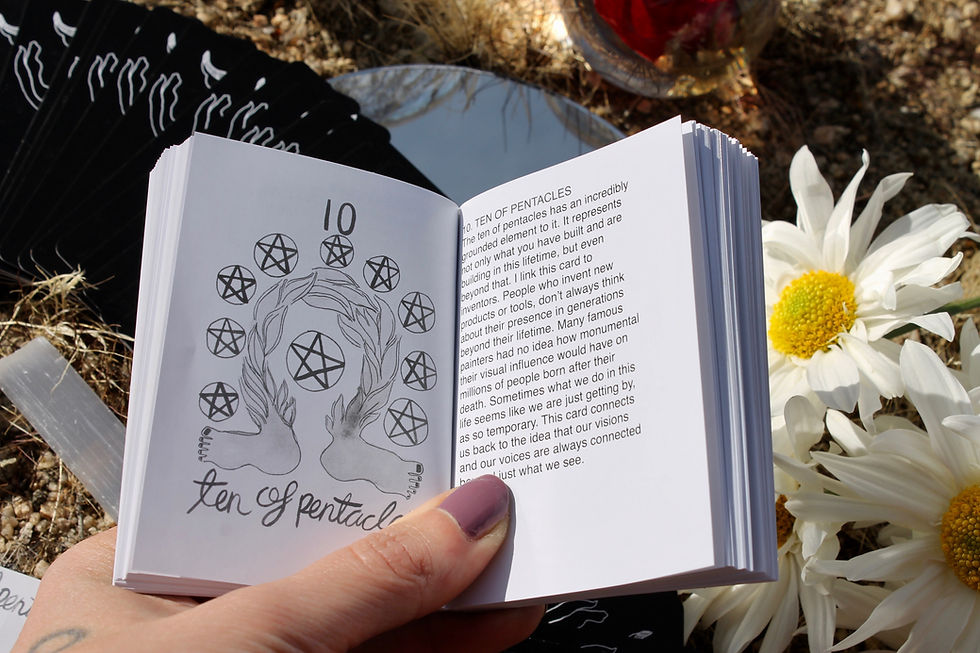 10
ten of pentacle
10. TEN OF PENTACLES
The ten of pentacles has an incredibly
grounded element to it. It represents
not only what you have built and are
building in this lifetime, but even
beyond that. I link this card to
inventors. People who invent new
products or tools, don't always think
about their presence in generations
beyond their lifetime. Many famous
painters had no idea how monumental
their visual influence would have on
millions of people born after their
death. Sometimes what we do in this
life seems like we are just getting by,
as so temporary. This card connects
us back to the idea that our visions
and our voices are always connected
just what we see.